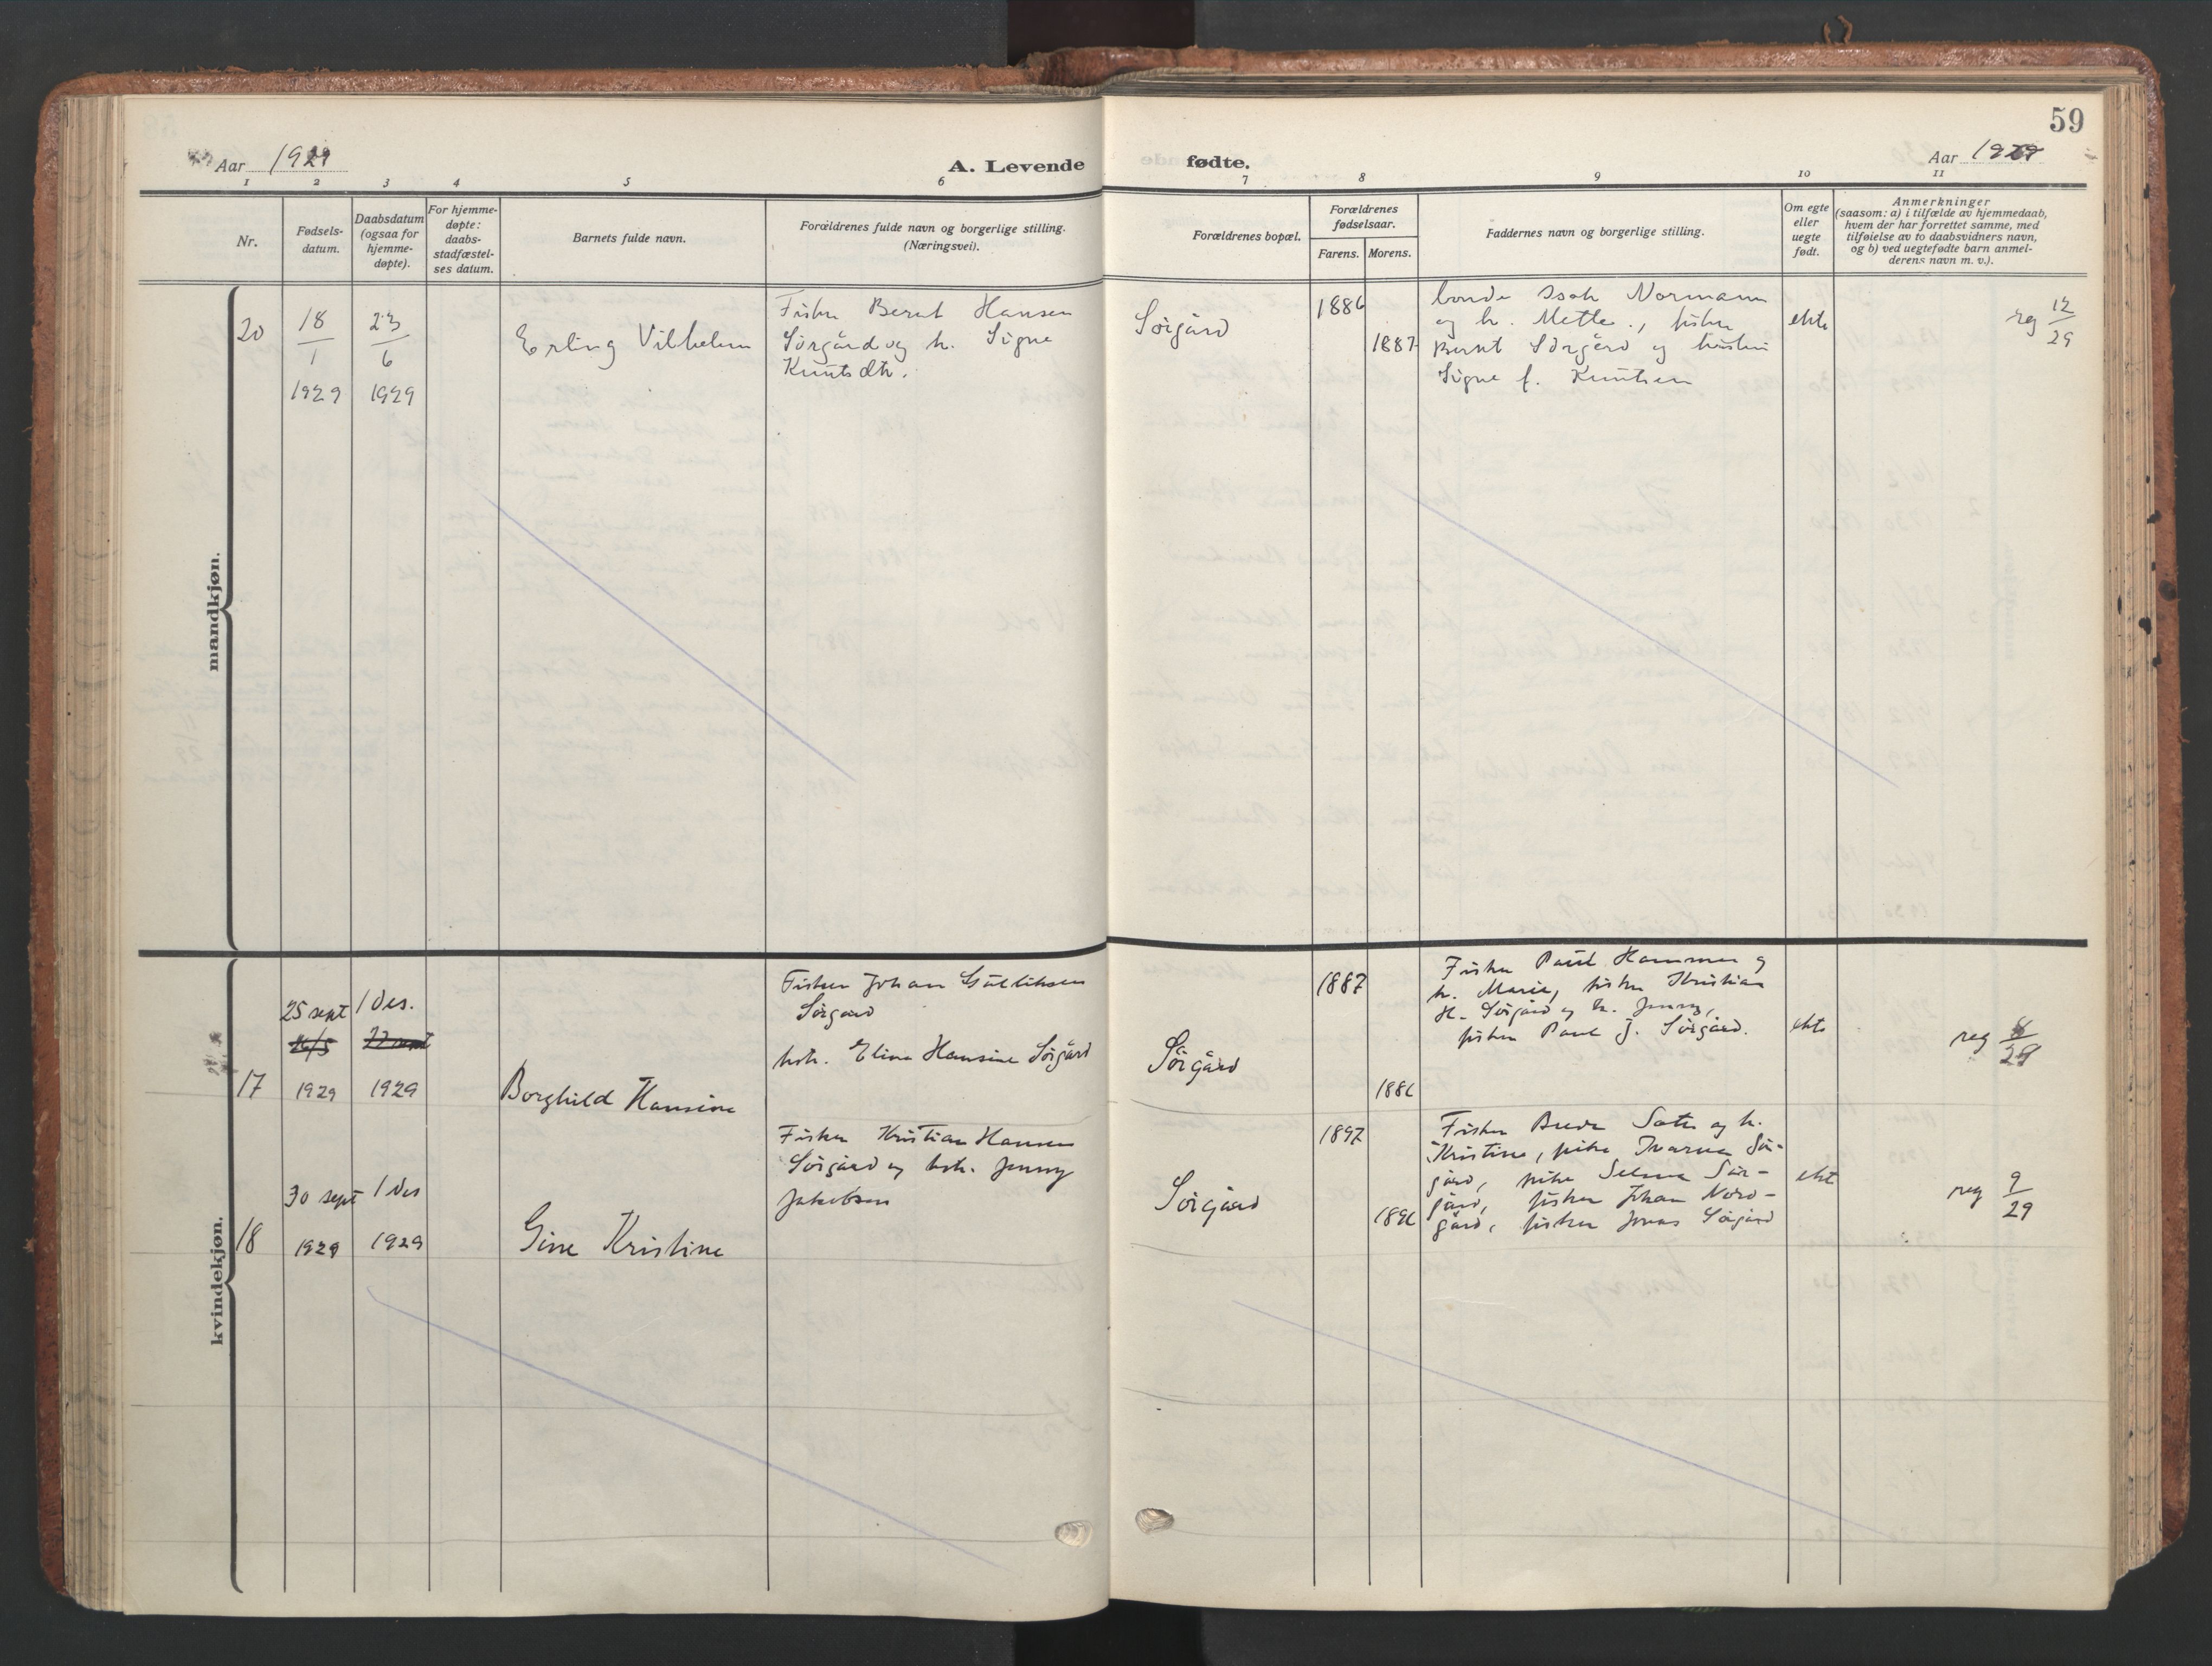 59
Aar 1929
A. Levende fødte.
Aar 1929
1 2 3 4 5 6 7 8 9 10 11
Nr.
Fødsels-
datum.
Daabsdatum
(ogsaa for
hjemme-
døpte).
For hjemme-
døpte:
daabs-
stadfæstel-
ses datum.
Barnets fulde navn.
Forældrenes fulde navn og borgerlige stilling.
(Næringsvei).
Forældrenes bopæl.
Forældrenes
fødselsaar.
Farens. Morens.
Faddernes navn og borgerlige stilling.
Om egte
eller
uegte
født.
Anmerkninger
(saasom: a) i tilfælde av hjemmedaab,
hvem der har forrettet samme, med
tilføielse av to daabsvidners navn,
og b) ved uegtefødte barn anmel-
derens navn m. v.).
mandkjøn.
20
18/1
1929
23/6
1929
Erling Vilhelm
Fisker Bernt Hansen
Sørgård og h. Signe
Knutsdtr.
Sørgård
1886
1887
bonde Isak Normann
og h. Mette., fisker
Bernt Sørgård og hustru
Signe f. Knutsen
ekte
reg 12/29
kvindekjøn.
17
25 sept
1929
1 des.
1929
Borghild Hansine
Fisker Johan Gulliksen
Sørgård
hstr. Eline Hansine Sørgård
Sørgård
1887
1886
Fisker Paul Hammer og
h. Marie, fisker Kristian
H. Sørgård og h. Jenny,
fisker Paul J. Sørgård.
ekte
reg 8/29
18
30 sept
1929
1 des
1929
Gine Kristine
Fisker Kristian Hansen
Sørgård og hstr. Jenny
Jakobsen
Sørgård
1897
1896
Fisker Sæter og h.
Kristine, pike Ivarna Sør-
gård, pike Selma Sør-
gård, fisker Johan Nord-
gård, fisker Jonas Sørgård
ekte
reg 9/29